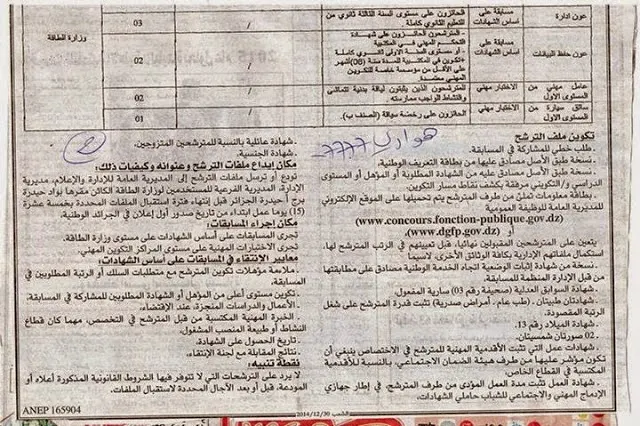 عون إدارة
مسابقة على أساس الشهادات
الحائزون على مستوى السنة الثالثة ثانوي من التعليم الثانوي كاملة.
03
وزارة الطاقة
عون حفظ البيانات
مسابقة على أساس الشهادات
- المترشحون الحائزون على شهادة التحكم المهني في المكتبية
- أو مستوى السنة الأولى ثانوي كاملة
+ تكوين في المكتبية لمدة ستة (06) أشهر على الأقل من مؤسسة خاصة للتكوين المهني معتمدة.
02
عامل مهني من المستوى الأول
الاختبار مهني
المترشحون الذين يثبتون لياقة بدنية تتماشى والنشاط الواجب ممارسته.
02
سائق سيارة من المستوى الأول
الاختبار مهني
الحائزون على رخصة سياقة (الصنف ب)
01
تكوين ملف الترشح
. طلب خطي للمشاركة في المسابقة.
. نسخة طبق الأصل مصادق عليها من بطاقة التعريف الوطنية.
. نسخة طبق الأصل مصادق عليه من الشهادة المطلوبة أو المؤهل أو المستوى
الدراسي و/التكويني مرفقة بكشف نقاط مسار التكوين.
. بطاقة معلومات تملئ من طرف المترشح يتم تحميلها على الموقع الإلكتروني
للمديرية العامة للوظيفة العمومية
(www.concours.fonction-publique.gov.dz)
أو (www.dgfp.gov.dz)
يتعين على المترشحين المقبولين نهائيا، قبل تعيينهم في الرتب المترشح لها،
استكمال ملفاتهم الإدارية بكافة الوثائق الأخرى، لاسيما
. نسخة من شهادة إثبات الوضعية اتجاه الخدمة الوطنية مصادق على مطابقتها
من قبل الإدارة المنظمة للمسابقة
. شهادة السوابق العدلية (صحيفة رقم 03) سارية المفعول.
. شهادتان طبيتان . (طب عام ، أمراض صدرية) تثبت قدرة المترشح على شغل
الرتبة المقصودة.
. شهادة الميلاد رقم 13.
. 02 صورتان شمسيتان.
. شهادات عمل التي تثبت الأقدمية المهنية للمترشح في الاختصاص ينبغي أن
تكون مؤشر عليها من طرف هيئة الضمان الاجتماعي، بالنسبة للأقدمية
المكتسبة في القطاع الخاص.
. شهادة العمل تثبت مدة العمل المؤدى من طرف المترشح، في إطار جهازي
الإدماج المهني والاجتماعي للشباب حاملي الشهادات.
. شهادة عائلية بالنسبة للمترشحين المتزوجين.
. شهادة الجنسية.
مكان إيداع ملفات الترشح وعنوانه وكيفيات ذلك:
تودع أو ترسل ملفات الترشح إلى المديرية العامة للإدارة والإعلام، مديرية
الإدارة، المديرية الفرعية للمستخدمين لوزارة الطاقة الكائن مقرها بواد حيدرة
برج أحيدرة الجزائر قبل إنتهاء فترة استقبال الملفات المحددة بخمسة عشرة
(15) يوما عمل ابتداء من تاريخ صدور أول إعلان في الجرائد الوطنية.
مكان إجراء المسابقات:
تجرى المسابقات على أساس الشهادات على مستوى وزارة الطاقة.
تجرى الاختبارات المهنية على مستوى مراكز التكوين المهني.
معايير الإنتقاء في المسابقات على أساس الشهادات:
. ملاءمة مؤهلات تكوين المترشح مع متطلبات السلك أو الرتبة المطلوبين في
المسابقة.
. تكوين مستوى أعلى من المؤهل أو الشهادة المطلوبين للمشاركة في المسابقة.
. الأعمال والدراسات المنجزة، عند الإقتضاء.
. الخبرة المهنية المكتسبة من قبل المترشح في التخصص، مهما كان قطاع
النشاط أو طبيعة المنصب المشغول.
. تاريخ الحصول على الشهادة.
. نتائج المقابلة مع لجنة الإنتقاء.
نقطة تنبيه:
لا يرد على الترشحات التي لا تتوفر فيها الشروط القانونية المذكورة أعلاه أو
المودعة، قبل أو بعد الآجال المحددة لاستقبال الملفات.
ANEP 165904
الشعب 2014/12/30